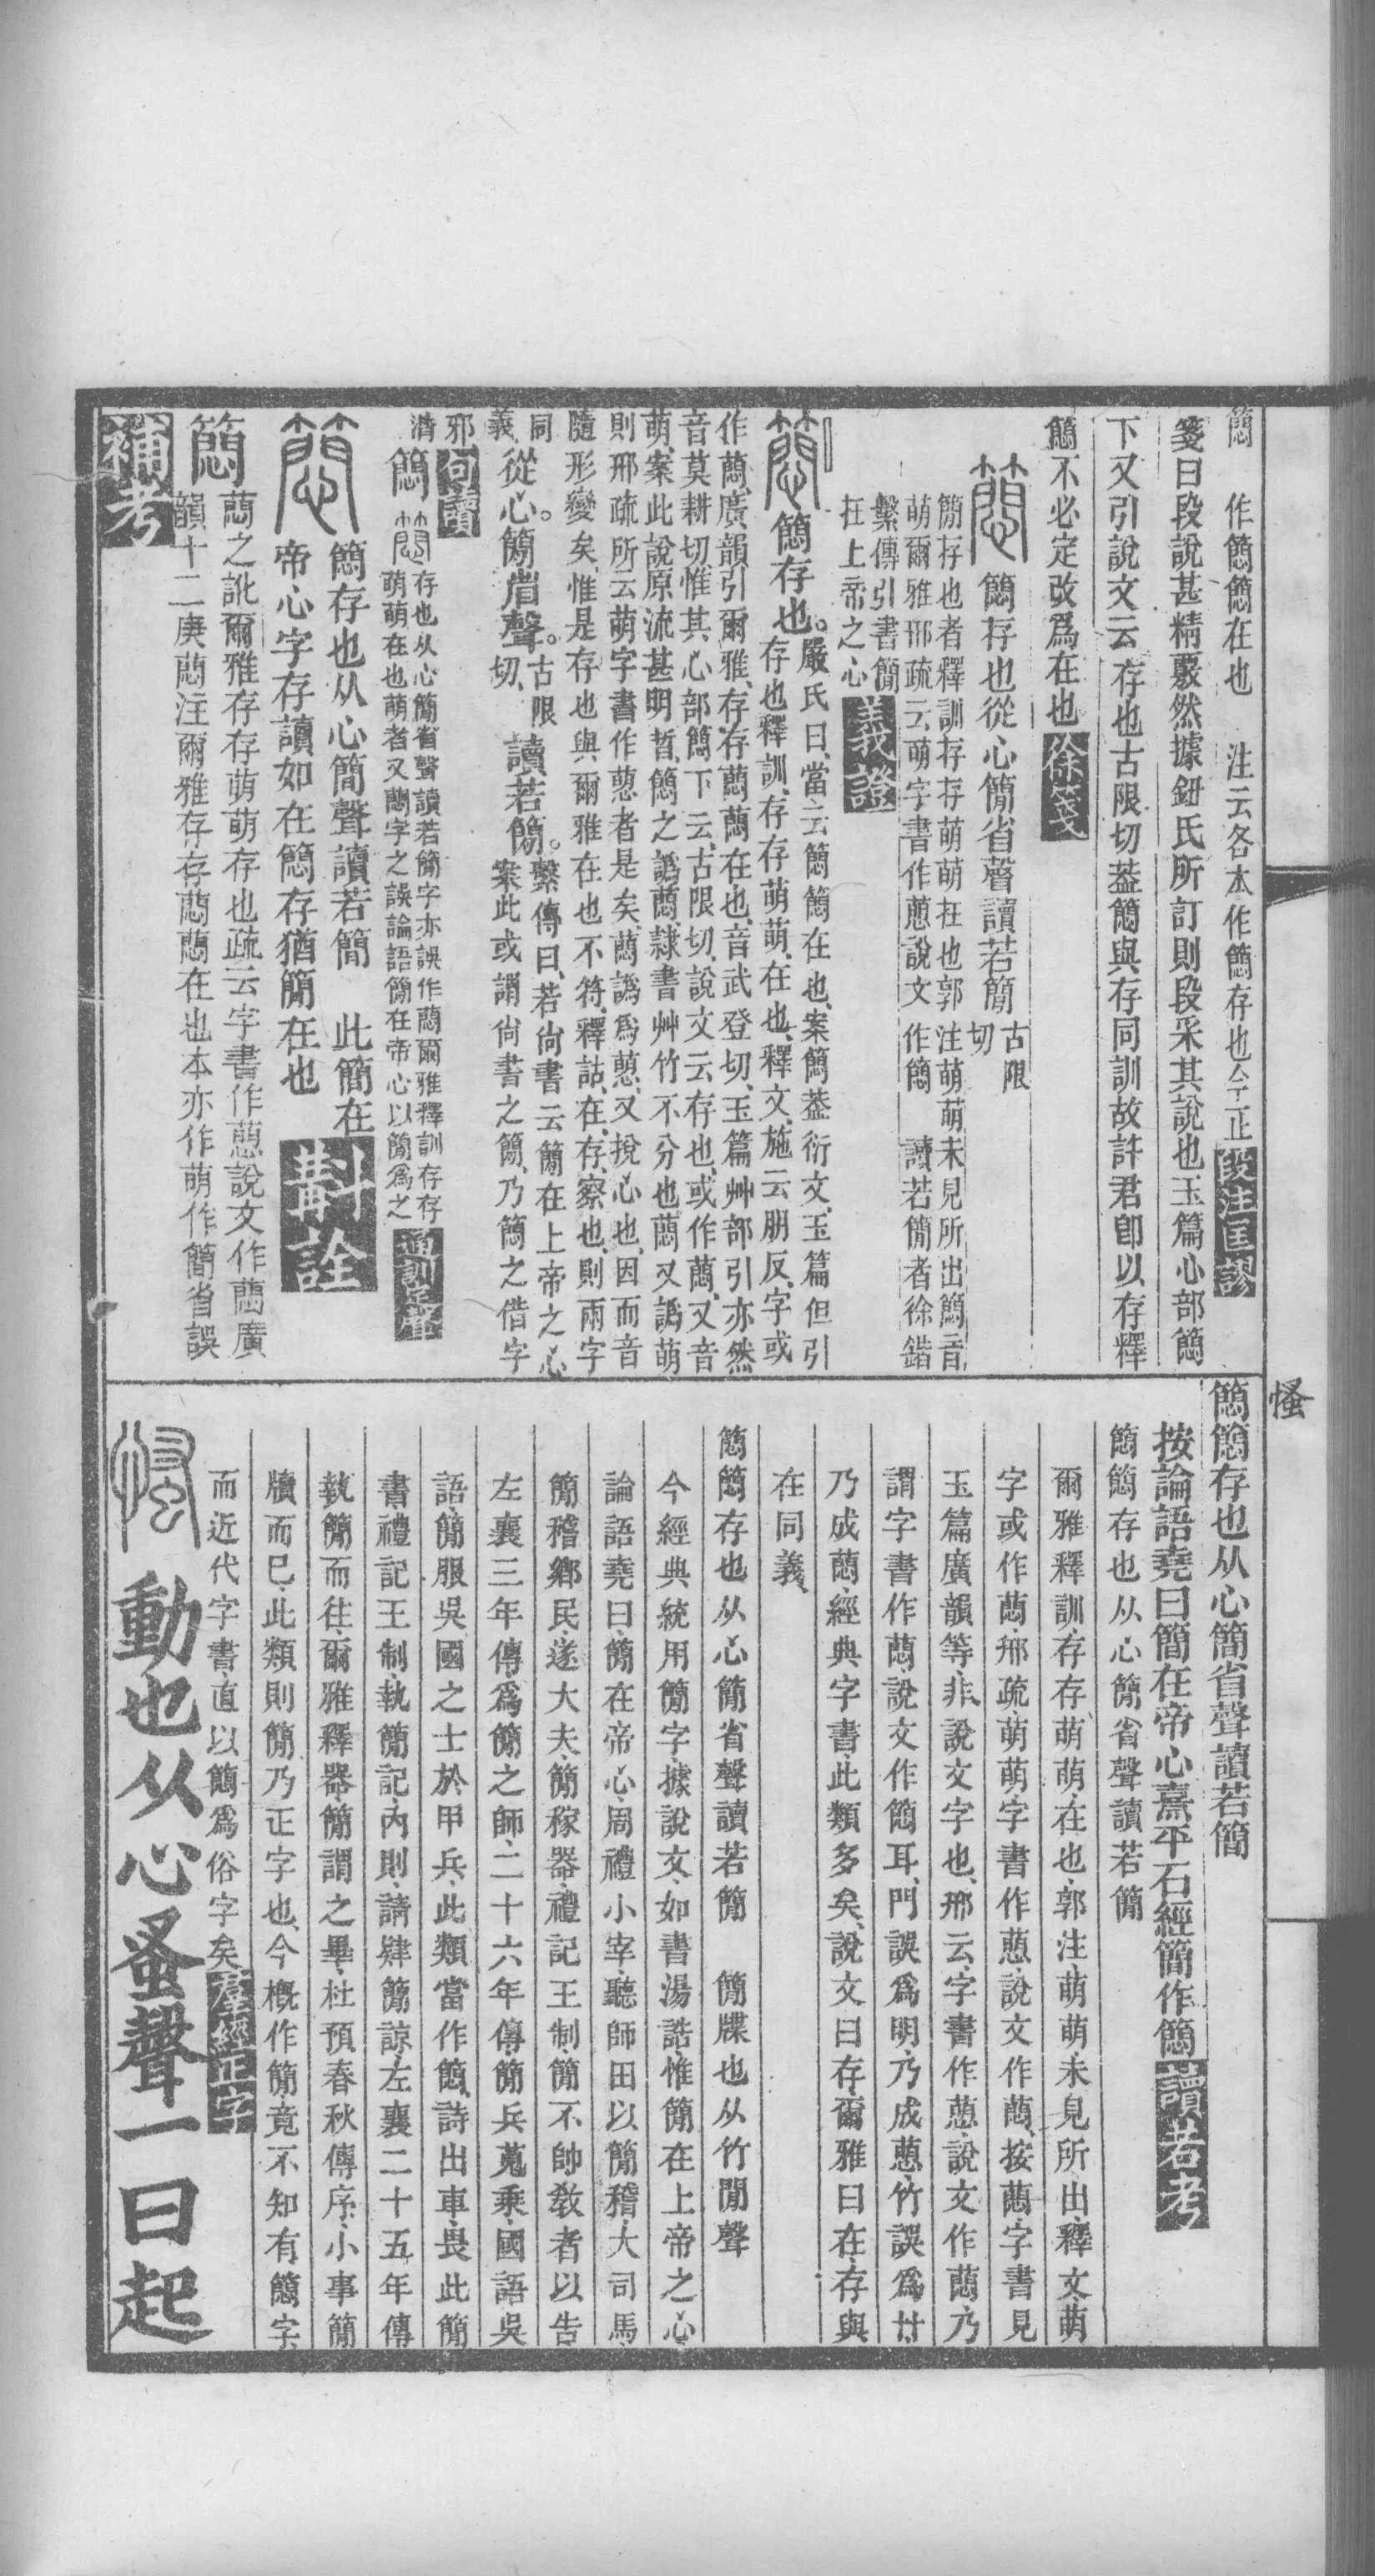 𥳑 作𥳑𥳑在也 注云各本作𥳑存也今正 段注匡謬
箋曰段說甚精覈然據鈕氏所訂則段采其說也玉篇心部𥳑
下又引說文云存也古限切葢𥳑與存同訓故許君卽以存釋
𥳑不必定改爲在也 徐箋
𥳑存也從心簡省聲讀若簡 古限
切
簡存也者釋訓存存萌萌在也郭注萌萌未見所出𥳑音
萌爾雅邢疏云萌字書作蕄說文作𥳑 讀若簡者徐鍇
繫傳引書簡
在上帝之心 義證
𥳑存也。嚴氏曰、當云𥳑𥳑在也、案𥳑葢衍文、玉篇但引
存也釋訓、存存萌萌、在也、釋文、施云朋反、字或
作蕄、廣韻引爾雅、存存蕄蕄在也、音武登切、玉篇艸部引亦然
音莫耕切、惟其心部𥳑下云、古限切、說文云存也、或作蕄、又音
萌、案此說原流甚明晢、𥳑之譌蕄、隸書艸竹不分也、蕄又譌萌
則邢疏所云萌字書作蕄者是矣、蕄譌爲蕄、又挩心也、因而音
隨形變矣、惟是存也與爾雅在也不符、釋詁、在、存、察也、則兩字
同
義 從心。簡省聲。古限
切、 讀若簡。繫傳曰、若尙書云簡在上帝之心
案此或謂尙書之簡、乃𥳑之借字
邪 句讀
𥳑 存也从心簡省聲讀若簡字亦誤作蕄爾雅釋訓存存
萌萌在也萌者又蕄字之誤論語簡在帝心以簡爲之 通訓定聲
𥳑存也从心簡聲讀若簡 此簡在
帝心字存讀如在𥳑存猶簡在也 斠詮
𥳑 蕄之訛爾雅存存萌萌存也疏云字書作蕄說文作蕄廣
韻十二庚蕄注爾雅存存蕄蕄在也本亦作萌作簡省誤
補考
慅
𥳑𥳑存也从心簡省聲讀若簡
按論語堯曰簡在帝心熹平石經簡作𥳑 讀若考
𥳑𥳑存也从心簡省聲讀若簡
爾雅釋訓、存存萌萌、在也、郭注、萌萌、未見所出、釋文、萌
字或作蕄、邢疏、萌萌、字書作蕄、說文作蕄、按蕄、字書見
玉篇廣韻等、非說文字也、邢云、字書作蕄、說文作蕄、乃
謂字書作蕄、說文作𥳑耳、門誤爲明、乃成蕄、竹誤爲廿
乃成蕄、經典字書、此類多矣、說文曰存、爾雅曰在、存與
在同義、
𥳑𥳑存也从心簡省聲讀若簡 簡牒也从竹閒聲
今經典統用簡字、據說文、如書湯誥、惟簡在上帝之心
論語堯曰、簡在帝心、周禮小宰、聽師田以簡稽、大司馬
簡稽鄉民、遂大夫、簡稼器、禮記王制、簡不帥教者以告
左襄三年傳、爲簡之師、二十六年傳、簡兵蒐乘、國語吳
語、簡服吳國之士於甲兵、此類當作𥳑、詩出車、畏此簡
書、禮記王制、執簡記、內則、請肄簡諒、左襄二十五年傳
執簡而往、爾雅釋器、簡謂之畢、杜預春秋傳序、小事簡
牘而已、此類則簡乃正字也、今概作簡、竟不知有𥳑字、
而近代字書、直以𥳑爲俗字矣 羣經正字
慅 動也从心蚤聲一曰起